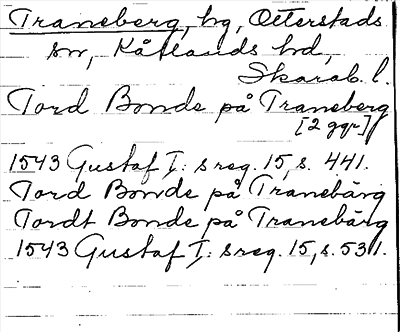 Traneberg, hg, Otterstads
sn, Kållands hd,
Skarab. l.
Tord Bonde på Traneberg
[2 ggr]
1543 Gustaf I: s reg. 15, s. 441.
Tord Bonde på Tranebärg
Tordt Bonde på Tranebärg
1543 Gustaf I: s reg. 15, s. 531.